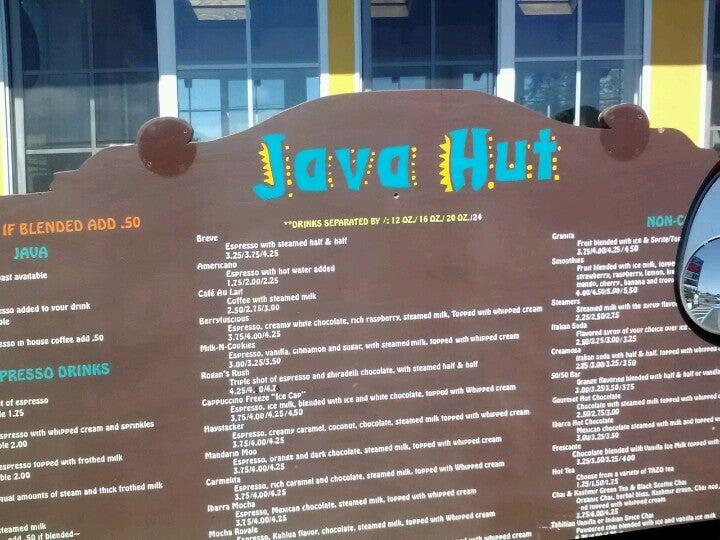 Java Hut
**DRINKS SEPARATED BY /: 12 OZ./ 16 OZ./ 20 OZ./24
IF BLENDED ADD .50
JAVA
available
espresso added to your drink
espresso in house coffee add .50
ESPRESSO DRINKS
of espresso
1.75
espresso with whipped cream and sprinkles
2.00
espresso topped with frothed milk
2.00
equal amounts of steam and thick frothed milk
steamed milk
.50 if blended~
Breve
Espresso with steamed half & half
3.25/3.75/4.25
Americano
Espresso with hot water added
1.75/2.00/2.25
Café Au Lait
Coffee with steamed milk
2.50/2.75/3.00
Berryluscious
Espresso, creamy white chocolate, rich raspberry, steamed milk, Topped with whipped cream
3.75/4.00/4.25
Milk-N-Cookies
Espresso, vanilla, cinnamon and sugar, with steamed milk, topped with whipped cream
3.00/3.25/3.50
Rogan's Rush
Triple shot of espresso and ghiradelli chocolate, with steamed half & half
Cappuccino Freeze "Ice Cap"
Espresso, ice milk, blended with ice and white chocolate, topped with Whipped cream
3.75/4.00/4.25/4.50
Haystacker
Espresso, creamy caramel, coconut, chocolate, steamed milk, topped with whipped cream
3.75/4.00/4.25
Mandarin Moo
Espresso, orange and dark chocolate, steamed milk, topped with whipped cream
3.75/4.00/4.25
Carmelita
Espresso, rich caramel and chocolate, steamed milk, topped with whipped cream
3.75/4.00/4.25
Ibarra Mocha
Espresso, Mexican chocolate, steamed milk, topped with whipped cream
3.75/4.00/4.25
Mocha Royale
Espresso, Kahlua flavor, chocolate, steamed milk, topped with Whipped cream
NON-C
Granita
Fruit blended with ice & Sprite/
3.75/4.00/4.25/4.50
Smoothies
Fruit blended with ice milk, topped
strawberry, raspberry, lemon,
mango, cherry, banana and
4.00/4.50/5.00/5.50
Steamers
Steamed milk with the syrup flavor
2.25/2.50/2.75
Italian Soda
Flavored syrup of your choice over ice
Cremosa
Italian soda with half & half, topped with
50/50 Bar
Orange flavoring blended with half & half or vanilla
Gourmet Hot Chocolate
Chocolate with steamed milk topped with
2.50/2.75/3.00
Ibarra Hot Chocolate
Mexican chocolate steamed with milk and topped with
3.00/3.25/3.50
Frescante
Chocolate blended with Vanilla Ice Milk topped with
3.25/3.50/3.75/4.00
Hot Tea
Choose from a variety of TAZO tea
1.25/1.50/1.75
Chai & Kashmir Green Tea & Black Scottie Chai
Organic Chai, herbal bliss, Kashmir green, Chai
topped with whipped cream
3.75/4.00/4.25
Tahitian Vanilla or Indian Spice Chai
Powdered chai blended with ice and vanilla ice milk